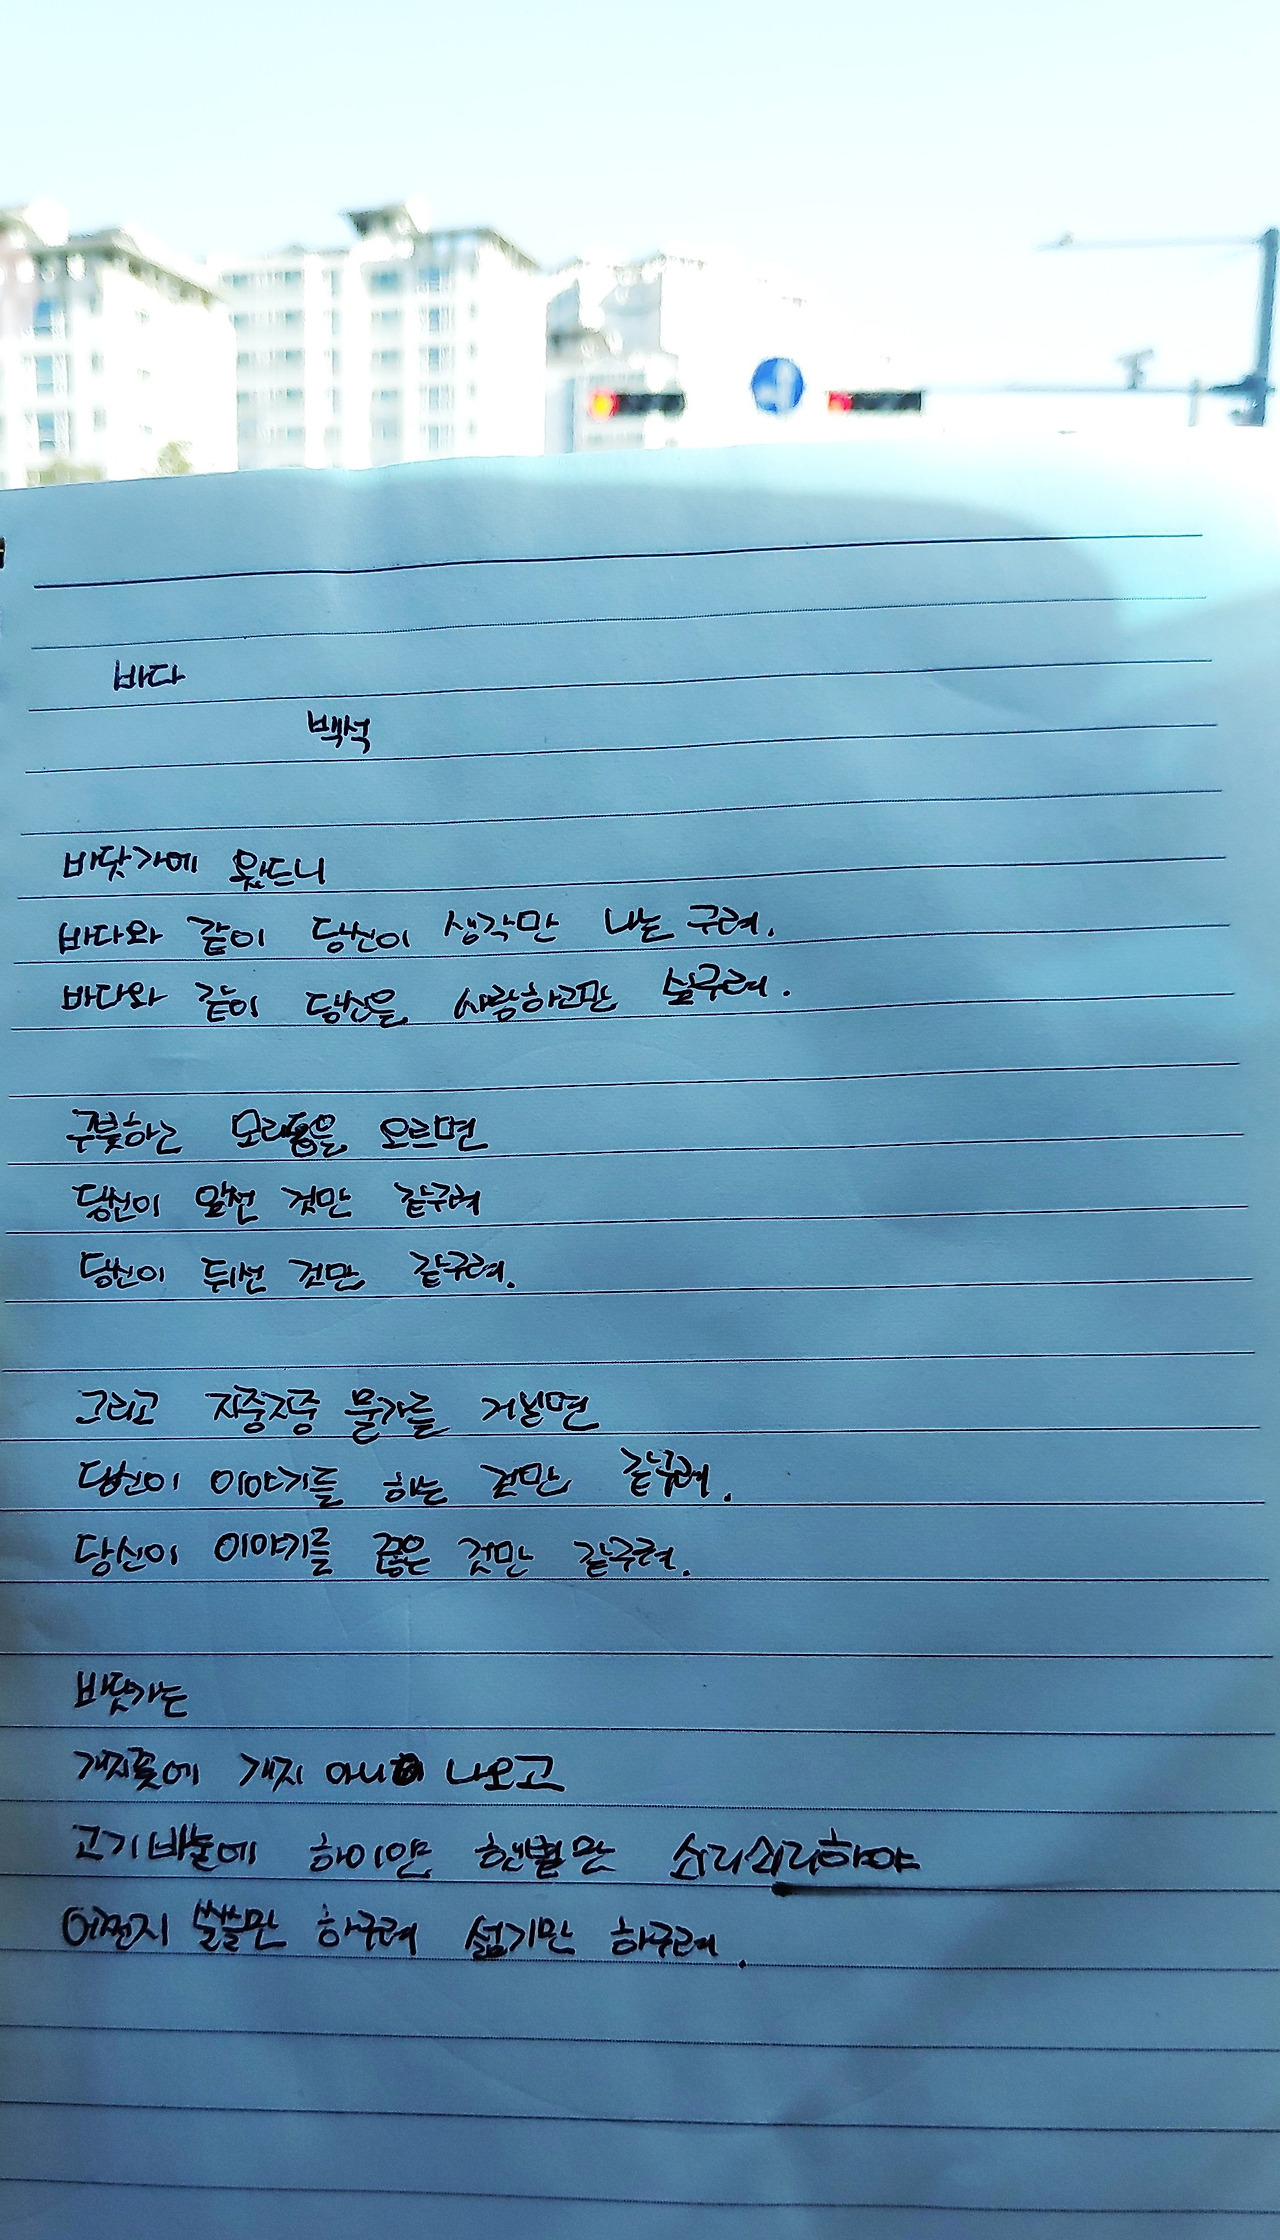 바다
백석
바닷가에 왔드니
바다와 같이 당신이 생각만 나는구려.
바다와 같이 당신을 사랑하고만 싶구려.
구붓하고 모래톱을 오르면
당신이 앞선 것만 같구려
당신이 뒤선 것만 같구려.
그리고 지중지중 물가를 거닐면
당신이 이야기를 하는 것만 같구려.
당신이 이야기를 끊은 것만 같구려.
바닷가는
개지꽃에 개지 아니 나오고
고기비눌에 하이얀 햇볕만 쇠리쇠리하야
어쩐지 쓸쓸만 하구려 섧기만 하구려.